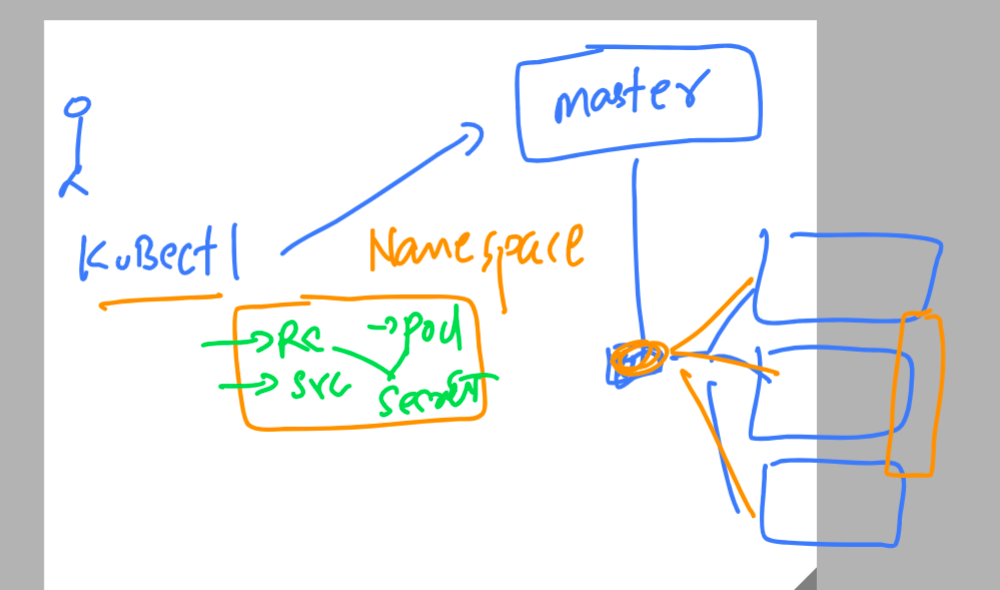 master
KuBectl
Namespace
RC → Pod
svc
Secret